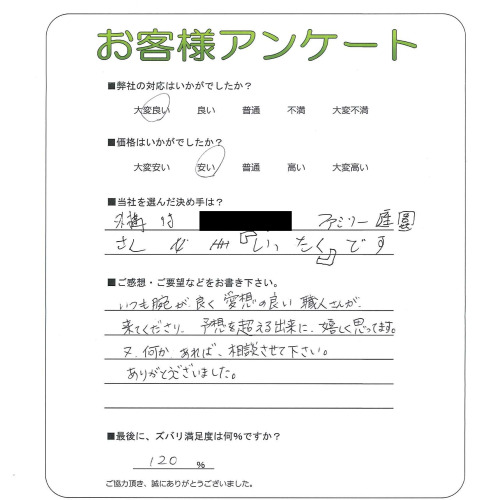 お客様アンケート
■弊社の対応はいかがでしたか？
大変良い 良い 普通 不満 大変不満
■価格はいかがでしたか？
大変安い 安い 普通 高い 大変高い
■当社を選んだ決め手は？
外構は ファミリー庭園
さん が 一 「いったく」です
■ご感想・ご要望などをお書き下さい。
いつも腕が良く愛想の良い職人さんが、
来てくださり、予想を超える出来に、嬉しく思ってます。
又、何かあれば、相談させて下さい。
ありがとうございました。
■最後に、ズバリ満足度は何%ですか？
120 %
ご協力頂き、誠にありがとうございました。